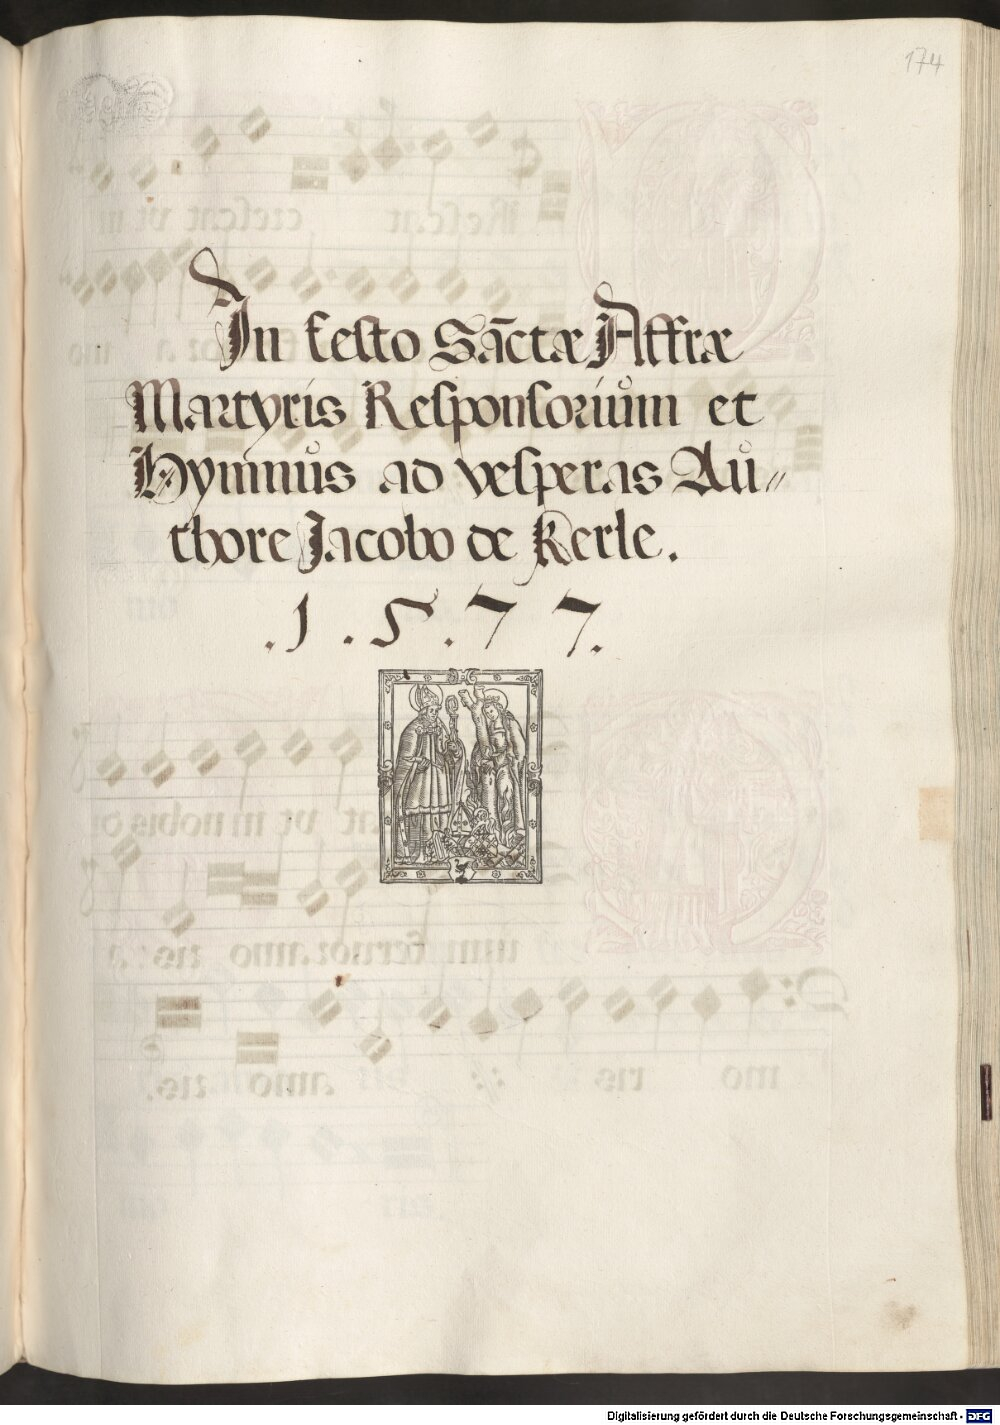 174
In festo Sāctæ Affræ
Martyris Responsorium et
Hymnus ad vesperas Au〃
thore Jacobo de Kerle.
.1.5.7 7.
Digitalisierung gefördert durch die Deutsche Forschungsgemeinschaft - DFG